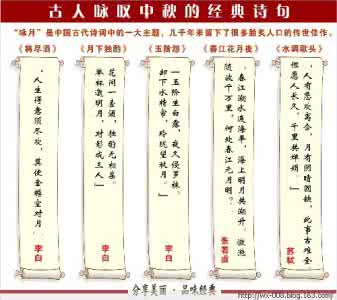 古人咏叹中秋的经典诗句
“咏月”是中国古代诗词中的一大主题，几千年来留下了很多脍炙人口的传世佳作。
《将尽酒》
人生得意须尽欢，莫使金樽空对月。
李白
《月下独酌》
花间一壶酒，独酌无相亲。
举杯邀明月，对影成三人
李白
《玉阶怨》
玉阶生白露，夜久侵罗袜。
却下水精帘，玲珑望秋月。
李白
《春江花月夜》
春江潮水连海平，海上明月共潮生。滟滟
随波千万里，何处春江无月明？
张若虚
《水调歌头》
人有悲欢离合，月有阴晴圆缺，此事古难全
但愿人长久，千里共婵娟。
苏轼
分享美丽·品味经典
http://wx-008.blog.163.com/